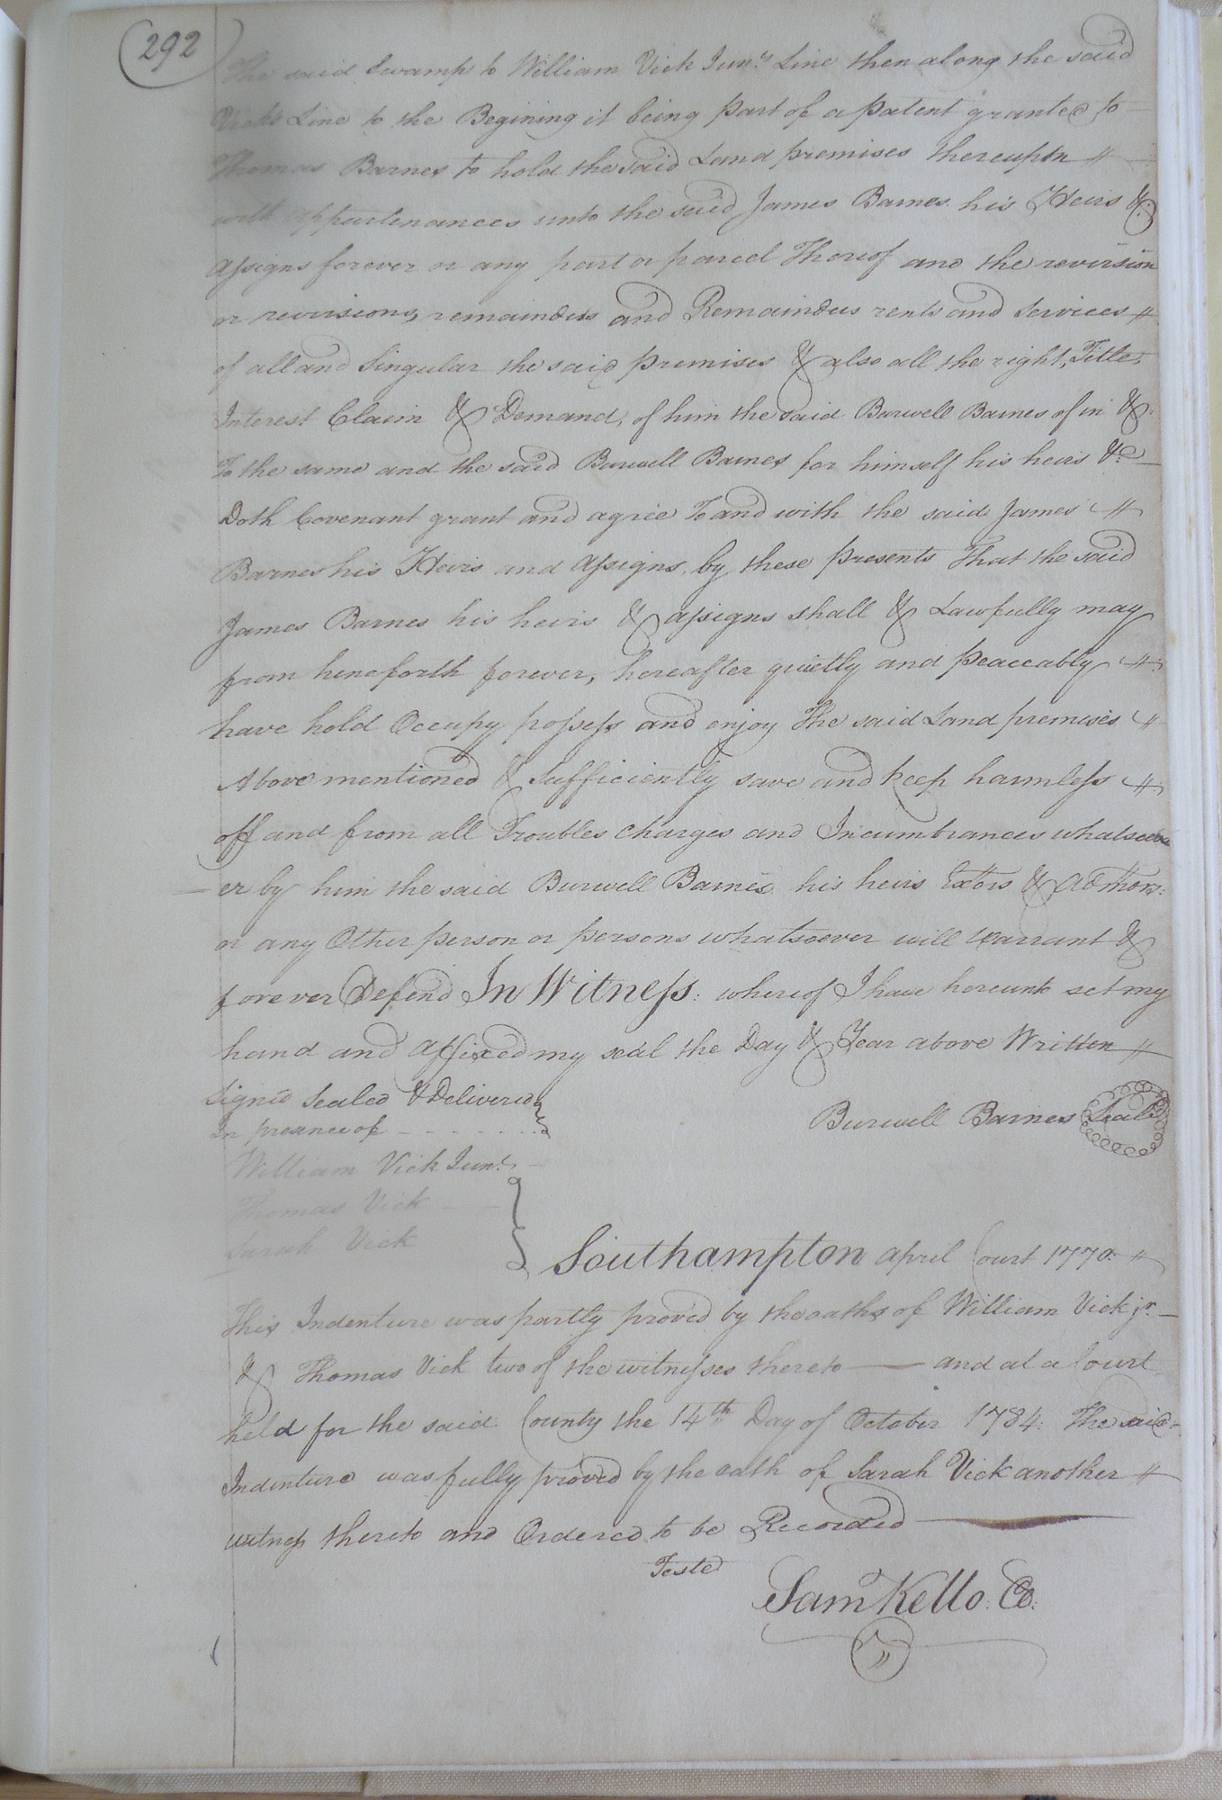 292
The said Swamp to William Vick Junrs Line then along the said
Vicks Line to the Begining it being part of a patent granted to
Thomas Barnes to hold the said Land premises thereupon
with appurtenances unto the said James Barnes his Heirs &
Assigns forever or any part or parcel Thereof and the revirsion
or revirsions, remainders and Remainders rents and Services
of all and Singular the said premises & also all the right, Title,
Interest Claim & Demand, of him the said Burwell Barnes of in &
To the same and the said Burwell Barnes for himself his heirs &c
Doth Covenant grant and agree To and with the said James
Barnes his Heirs and Assigns by these presents That the said
James Barnes his heirs & assigns shall & Lawfully may
from henceforth forever, hereafter quietly and peaceably
have hold Occupy possess and enjoy The said Land premises
Above mentioned & Sufficiently save and keep harmless
off and from all Troubles charges and Incumbrances whatsoev
er by him the said Burwell Barnes his heirs Extors & admors:
or any Other person or persons whatsoever will warrant &
forever Defend In Witness: whereof I have hereunto set my
hand and affixed my seal the Day & Year above Written
Signd Sealed & Delivered
In presence of
Burwell Barnes Seal
William Vick Junr
Thomas Vick
Sarah Vick
Southampton april Court 1770:
This Indenture was partly proved by the oaths of William Vick jr.
& Thomas Vick two of the witnesses thereto — and at a Court
held for the said County the 14th Day of October 1784: The said
Indenture was fully proved by the oath of Sarah Vick another
witness thereto and Ordered to be Recorded
Teste
Saml Kello. CC: